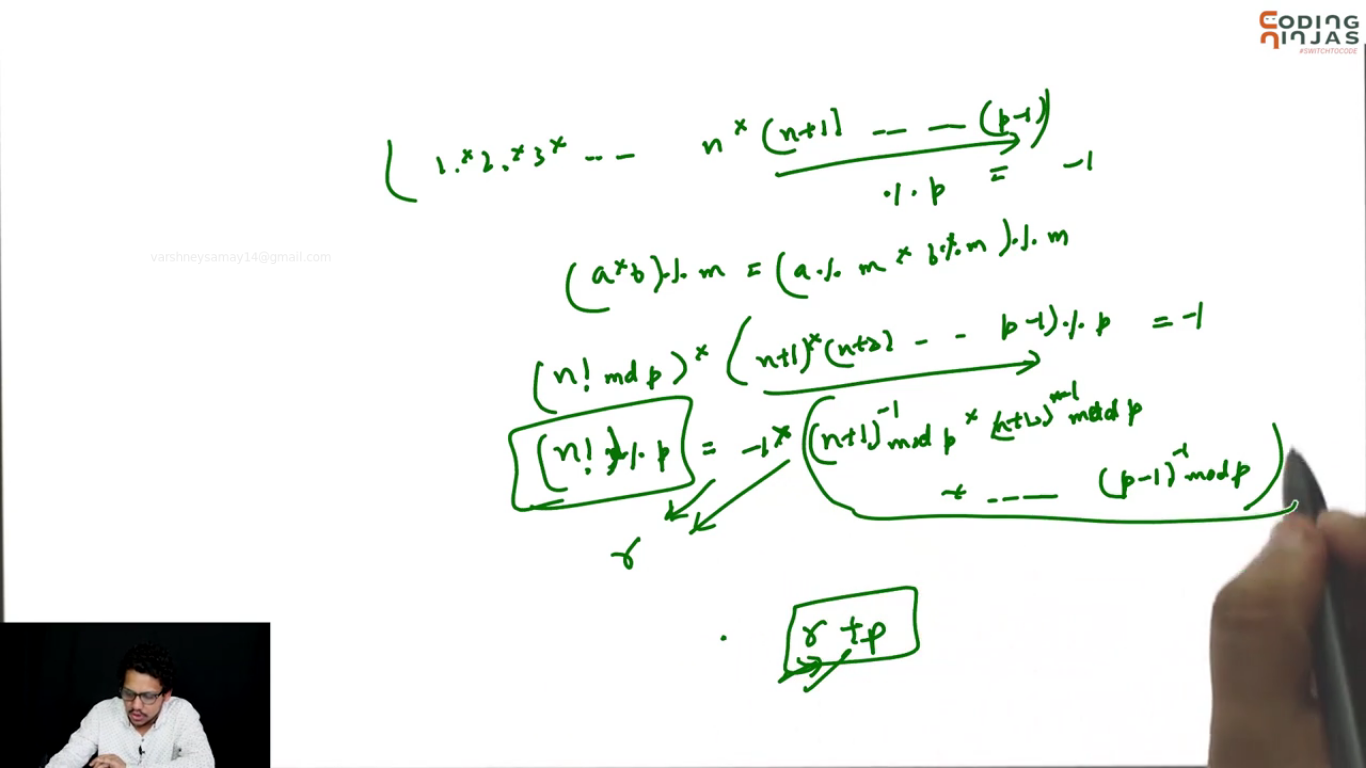 CODING
NINJAS
#SWITCHTOCODE
( 1.*2.*3* -- -- n*(n+1) -- -- (p-1))
.%. p = -1
varshneysamay14@gmail.com
(a*b).%. m = (a.%. m * b.%.m).%. m
(n! md p)* (n+1)*(n+2) - - p-1).%. p = -1
(n!)%. p = -1* ((n+1)⁻¹ mod p * (n+2)⁻¹ mod p
* ---- (p-1)⁻¹ mod p)
r
r+p